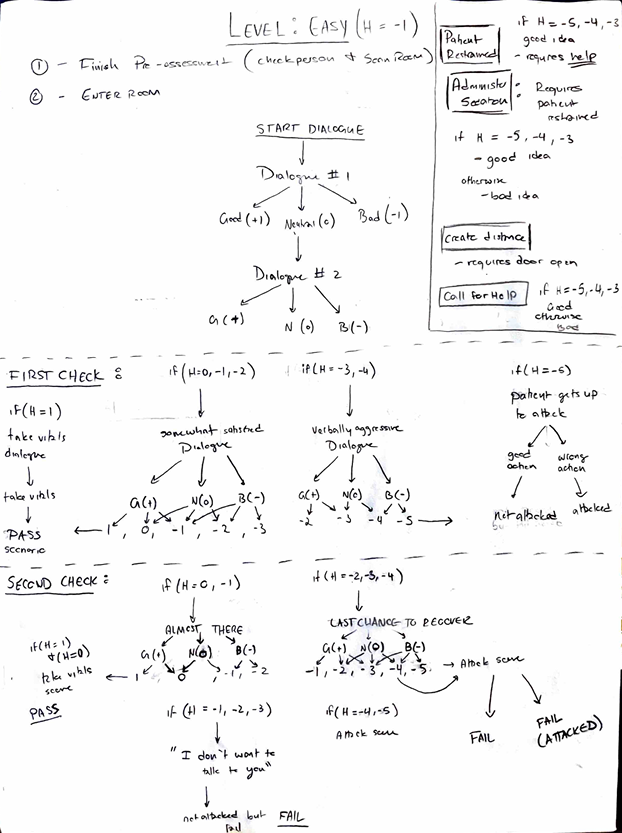 LEVEL: EASY (H = -1)
① - Finish Pre-assessment (check person + Scan Room)
② - ENTER ROOM
START DIALOGUE
Dialogue # 1
Good (+1) Neutral (0) Bad (-1)
Dialogue # 2
G (+) N (0) B (-)
Patient Restrained
if H = -5, -4, -3
good idea
- requires help
Administer Sedation : Requires
patient
restrained
if H = -5, -4, -3
- good idea
otherwise
- bad idea
Create distance
- requires door open
Call for Help
if H = -5, -4, -3
Good
otherwise
Bad
FIRST CHECK :
if (H = 1)
take vitals
dialogue
take vitals
PASS
scenario
if (H=0, -1, -2)
somewhat satisfied
Dialogue
G(+) N(0) B(-)
1, 0, -1, -2, -3
if (H = -3, -4)
Verbally aggressive
Dialogue
G(+) N(0) B(-)
-2 -3 -4 -5
if (H = -5)
patient gets up
to attack
good action wrong action
not attacked attacked
SECOND CHECK :
if (H = 1)
+ (H=0)
take vitals
scene
PASS
if (H = 0, -1)
ALMOST THERE
G(+) N(0) B(-)
1 0, -1, -2
if (H = -1, -2, -3)
"I don't want to
talk to you"
not attacked but FAIL
if (H = -2, -3, -4)
LAST CHANCE TO RECOVER
G(+) N(0) B(-)
-1, -2, -3, -4, -5 → Attack scene
if (H = -4, -5)
Attack scene
FAIL
FAIL
(ATTACKED)